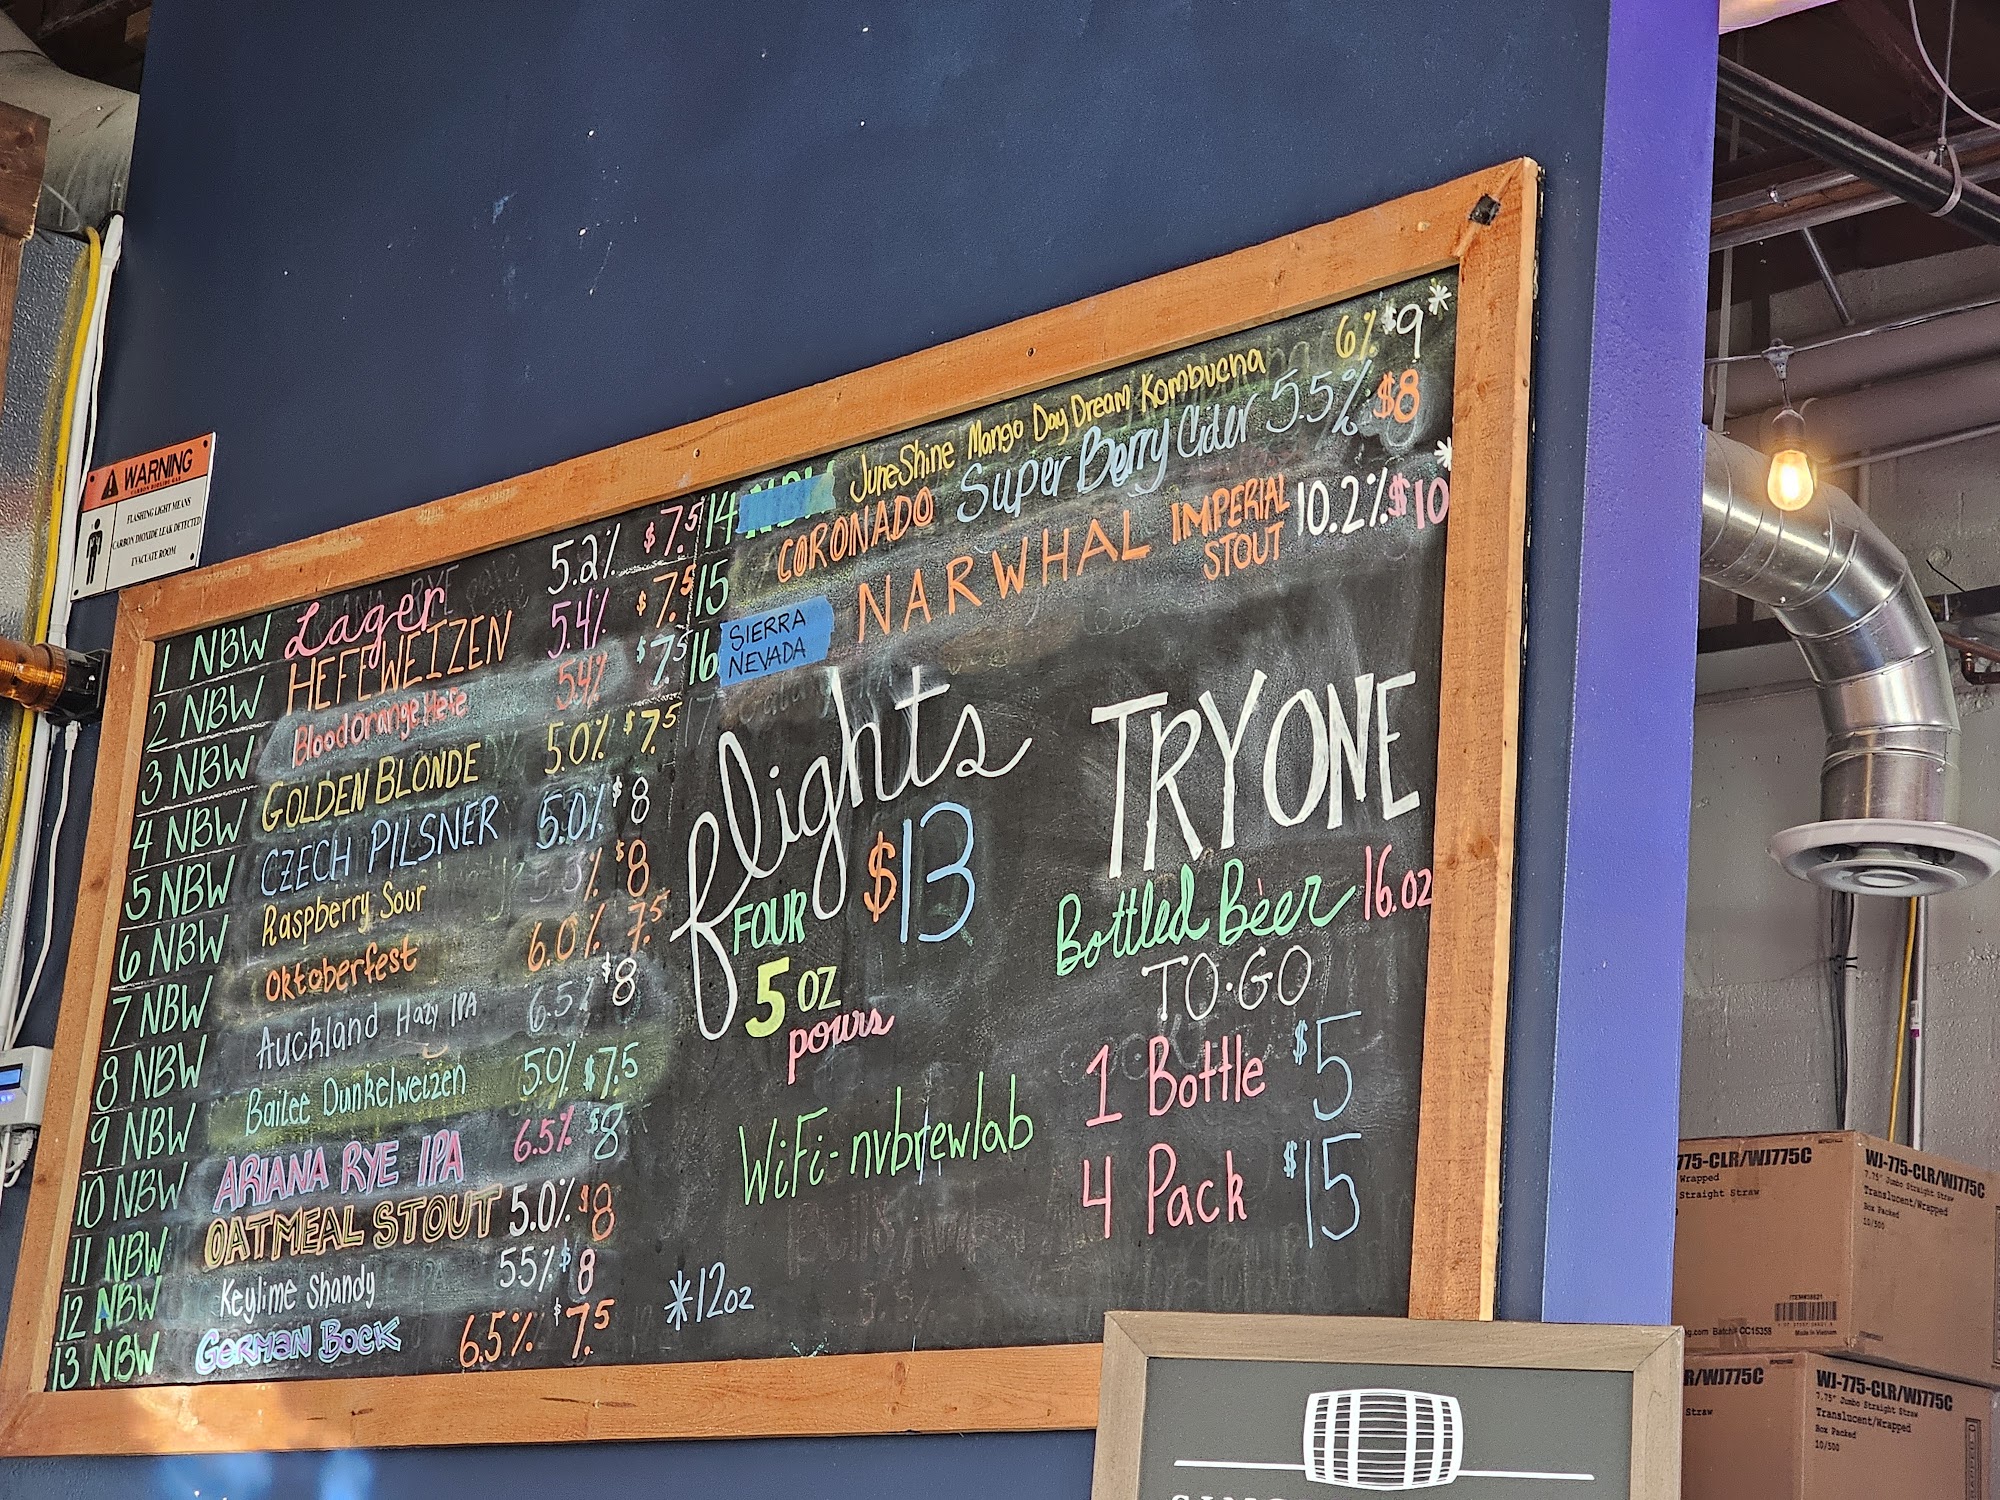 WARNING
CARBON DIOXIDE GAS
FLASHING LIGHT MEANS
CARBON DIOXIDE LEAK DETECTED
EVACUATE ROOM
1 NBW Lager 5.2% $7.5
2 NBW HEFEWEIZEN 5.4% $7.5
3 NBW Blood Orange Hefe 5.4% $7.5
4 NBW GOLDEN BLONDE 5.0% $7.5
5 NBW CZECH PILSNER 5.0% $8
6 NBW Raspberry Sour 5.3% $8
7 NBW Oktoberfest 6.0% 7.5
8 NBW Auckland Hazy IPA 6.5% $8
9 NBW Bailee Dunkelweizen 5.0% $7.5
10 NBW ARIANA RYE IPA 6.5% $8
11 NBW OATMEAL STOUT 5.0% $8
12 NBW Keylime Shandy 5.5% $8
13 NBW GERMAN BOCK 6.5% $7.5
14 JuneShine Mango Day Dream Kombucha 6% $9*
15 CORONADO Super Berry Cider 5.5% $8
16 SIERRA NEVADA NARWHAL IMPERIAL STOUT 10.2% $10*
flights
$13
FOUR
5 OZ
pours
WiFi-nvbrewlab
*12oz
TRY ONE
Bottled Beer 16.oz
TO-GO
1 Bottle $5
4 Pack $15
775-CLR/WJ775C
Wrapped
Straight Straw
WJ-775-CLR/WJ775C
7.75" Jumbo Straight Straw
Translucent/Wrapped
Box Packed
10/500
Batch# CC15358
Made in Vietnam
R/WJ775C
Straw
WJ-775-CLR/WJ775C
7.75" Jumbo Straight Straw
Translucent/Wrapped
Box Packed
10/500